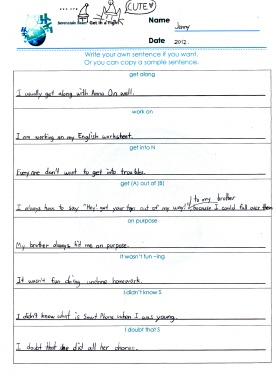 CUTE
Berenstain Bears Get in a Fight
Name Jenny
Date 2012.
Write your own sentence if you want.
Or you can copy a sample sentence.
get along
I usually get along with Anna On well.
work on
I am working on my English worksheet.
get into N
Everyone don't want to get into troubles.
get (A) out of (B)
to my brother
I always have to say "Hey! get your toys out of my way!" because I could fall over them
on purpose
My brother always hit me on purpose.
It wasn't fun -ing
It wasn't fun doing undone homework.
I didn't know S
I didn't know what is Smart Phone when I was young.
I doubt that S
I doubt that she did all her chores.